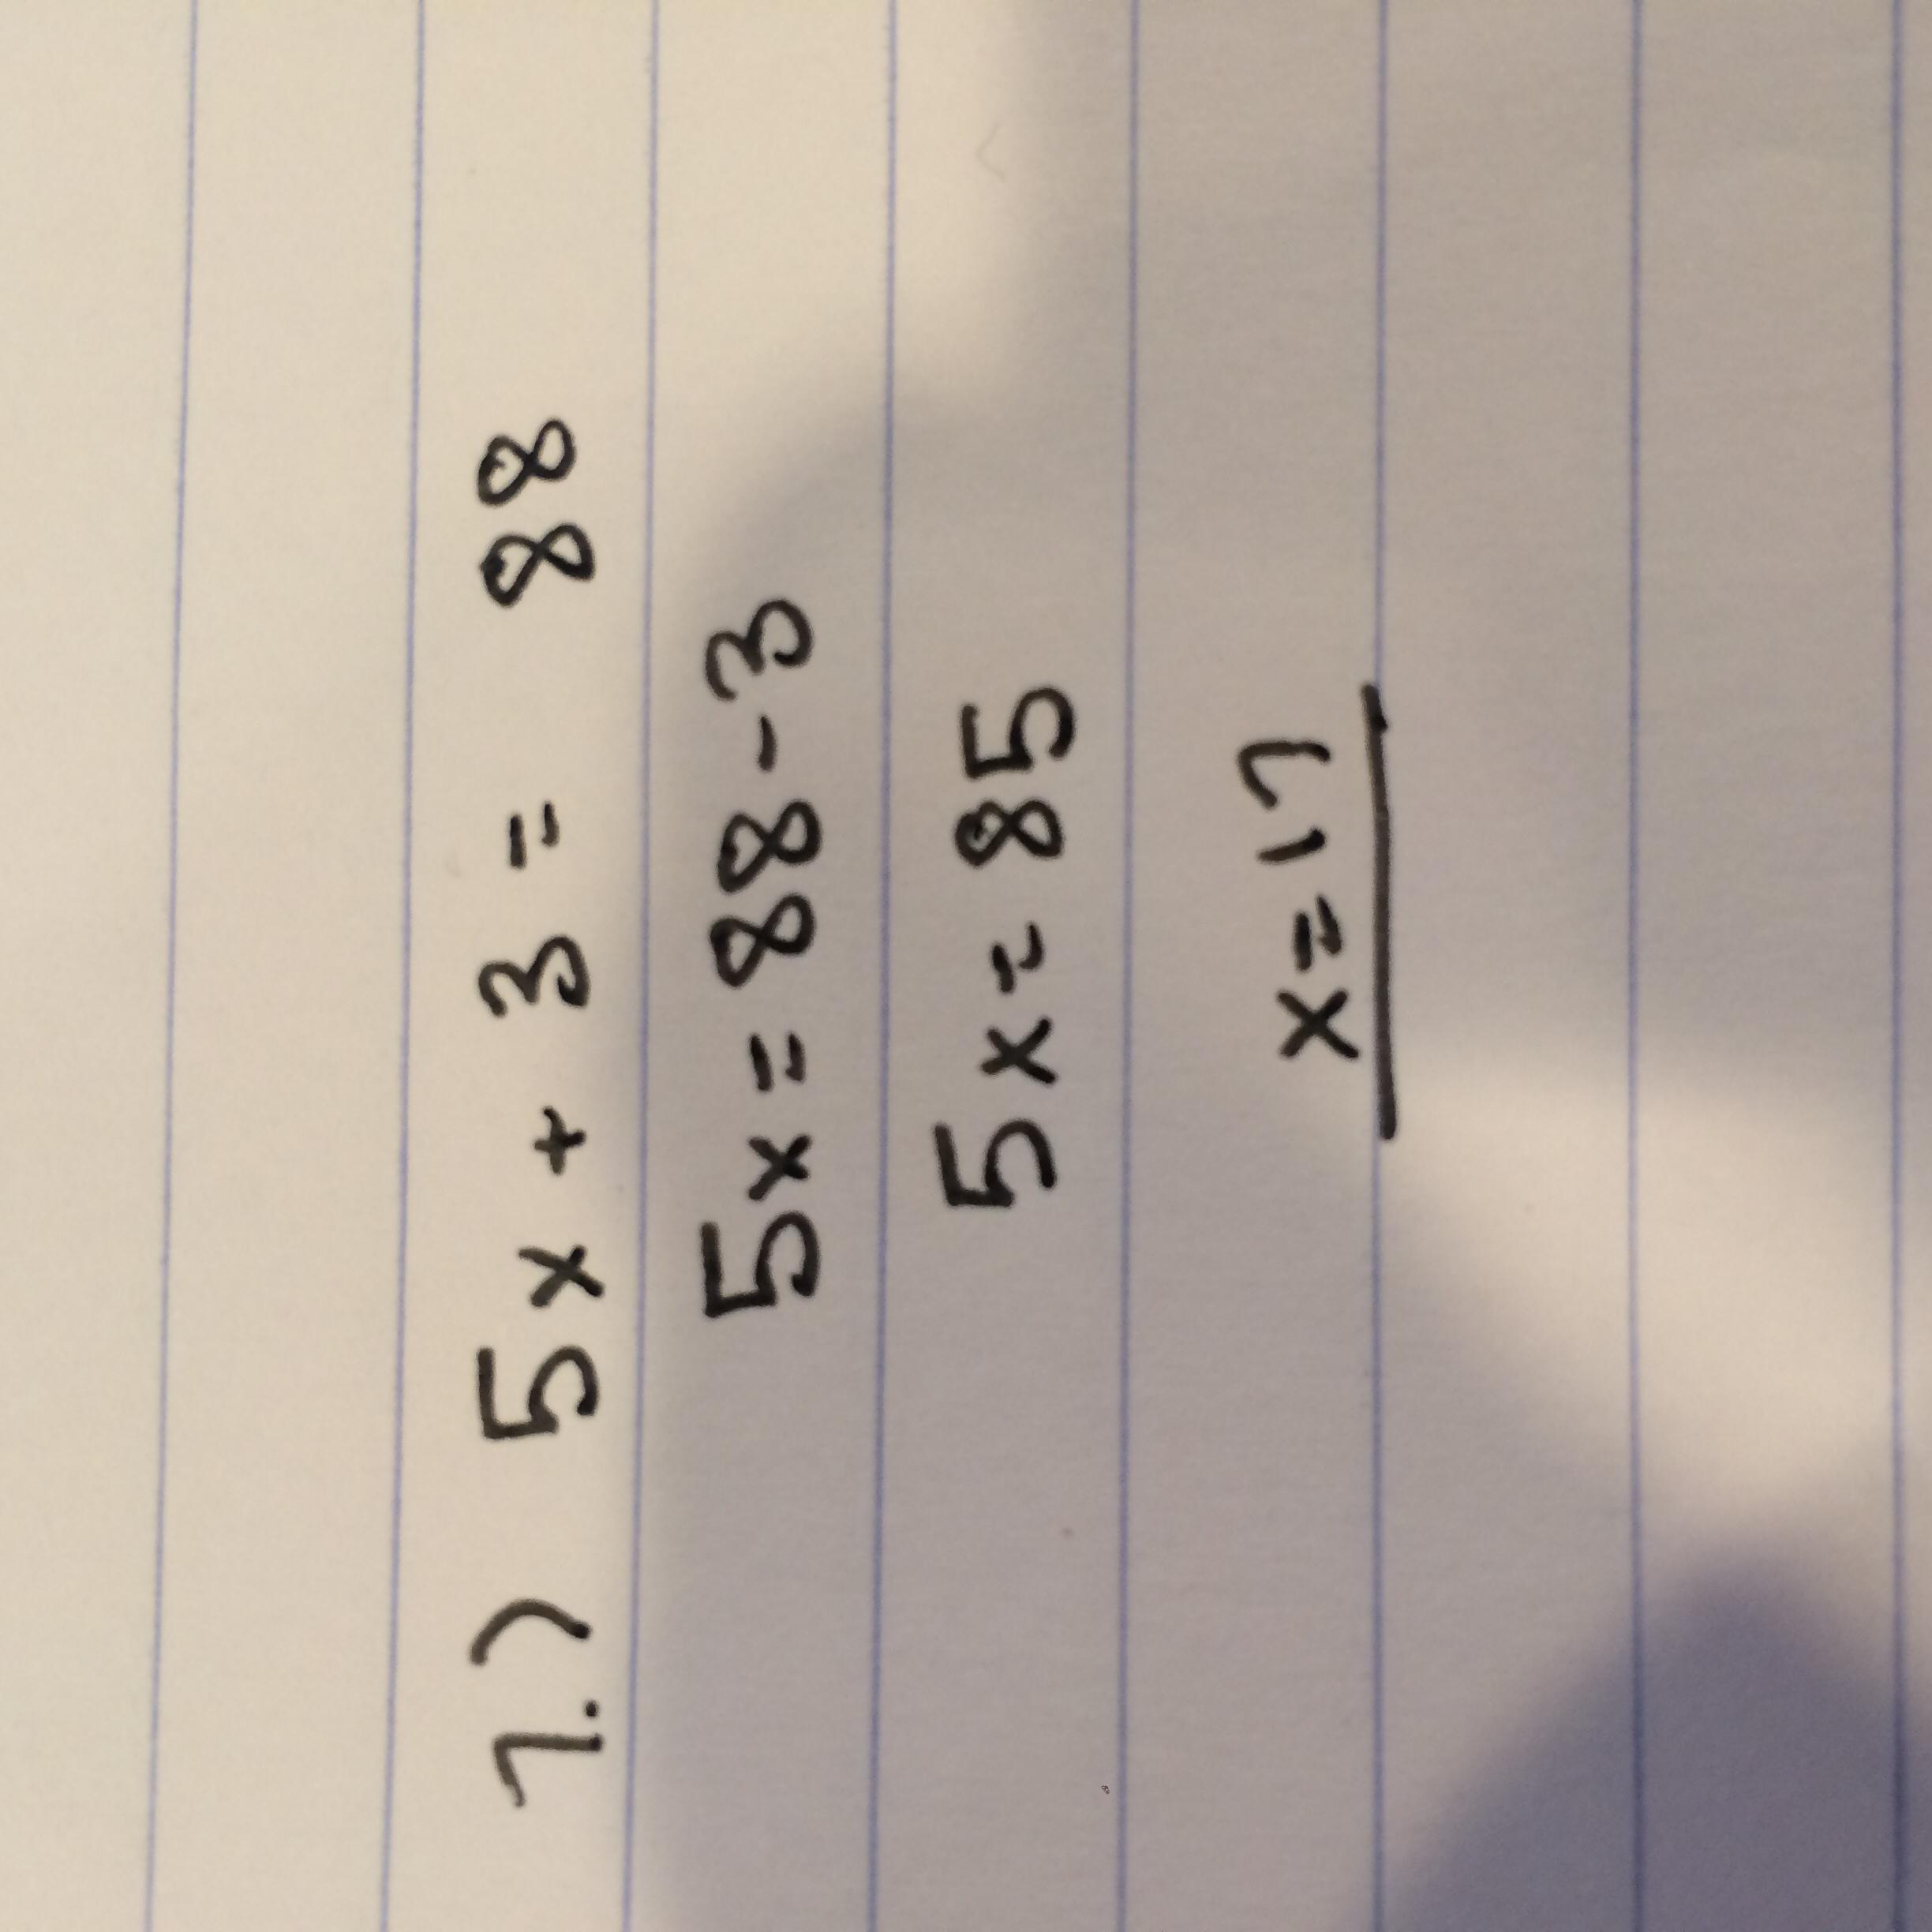 7.) 5x + 3 = 88
5x = 88 - 3
5x = 85
x = 17